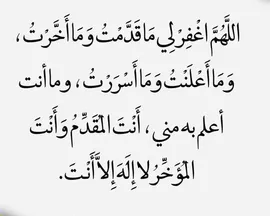 اللَّهُمَّ اغْفِرْ لِي مَا قَدَّمْتُ وَمَا أَخَّرْتُ،
وَمَا أَعْلَنْتُ وَمَا أَسْرَرْتُ، وما أنت
أعلم به مني، أَنْتَ الْمُقَدِّمُ وَأَنْتَ
الْمُؤَخِّرُ لا إِلَهَ إِلاَّ أَنْتَ.